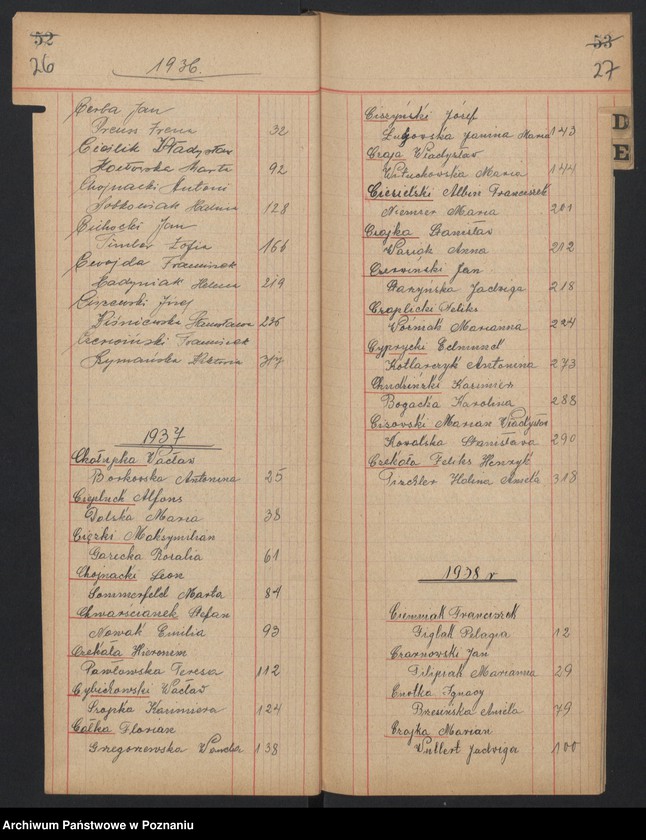 52
26
1936.
Cerba Jan
Preuss Irena 32
Cieślik Władysław
Kozłowska Marta 92
Chojnacki Antoni
Sobkowiak Helena 128
Cichocki Jan
Timler Zofia 166
Cwojda Franciszek
Ladyniak Helena 219
Cyrewski Józef
Wiśniewska Stanisława 236
Czerwiński Franciszek
Szymańska Wiktoria 317
1937
Chałupka Wacław
Borkowska Antonina 25
Ciepluch Alfons
Polska Maria 38
Ciężki Maksymilian
Garecka Rozalia 61
Chojnacki Leon
Sommerfeld Marta 84
Chwarścianek Stefan
Nowak Emilia 93
Czekała Hieronim
Pawłowska Teresa 112
Cybichowski Wacław
Szopka Kazimiera 124
Całka Florian
Grzegorzewska Wanda 138
53
27
D
E
Ciszyński Józef
Janina Maria 143
Czaja Władysław
Wituchowska Maria 144
Ciesielski Albin Franciszek
Niemier Maria 201
Czajka Stanisław
Wasiak Anna 212
Czerwiński Jan
Starzyńska Jadwiga 218
Czaplicki Feliks
Woźniak Marianna 224
Cyprycki Edmund
Kotlarczyk Antonina 273
Chudziński Kazimierz
Bogacka Karolina 288
Cisowski Marian Władysław
Kowalska Stanisława 290
Czekała Feliks Henryk
Tischler Helena Aniela 318
1938 r
Ciemniak Franciszek
Figlak Pelagia 12
Czarnowski Jan
Filipiak Marianna 29
Cnotka Ignacy
Brzezińska Aniela 79
Czajka Marian
Wullert Jadwiga 100
Archiwum Państwowe w Poznaniu